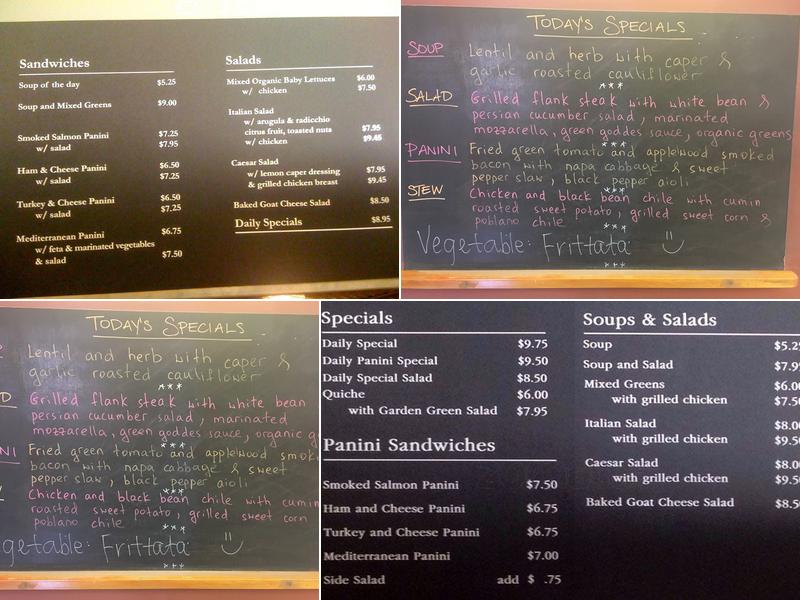 Sandwiches
Soup of the day $5.25
Soup and Mixed Greens $9.00
Smoked Salmon Panini $7.25
w/ salad $7.95
Ham & Cheese Panini $6.50
w/ salad $7.25
Turkey & Cheese Panini $6.50
w/ salad $7.25
Mediterranean Panini $6.75
w/ feta & marinated vegetables
& salad $7.50
Salads
Mixed Organic Baby Lettuces $6.00
w/ chicken $7.50
Italian Salad
w/ arugula & radicchio
citrus fruit, toasted nuts $7.95
w/ chicken $9.45
Caesar Salad
w/ lemon caper dressing $7.95
& grilled chicken breast $9.45
Baked Goat Cheese Salad $8.50
Daily Specials $8.95
TODAY'S SPECIALS
SOUP Lentil and herb with caper &
garlic roasted cauliflower
***
SALAD Grilled flank steak with white bean &
persian cucumber salad, marinated
mozzarella, green goddes sauce, organic greens
***
PANINI Fried green tomato and applewood smoked
bacon with napa cabbage & sweet
pepper slaw, black pepper aioli
***
STEW Chicken and black bean chile with cumin
roasted sweet potato, grilled sweet corn &
poblano chile
***
Vegetable: Frittata
***
TODAY'S SPECIALS
Lentil and herb with caper &
garlic roasted cauliflower
***
D Grilled flank steak with white bean
persian cucumber salad, marinated
mozzarella, green goddes sauce, organic g
***
NI Fried green tomato and applewood smok
bacon with napa cabbage & sweet
pepper slaw, black pepper aioli
***
Chicken and black bean chile with cumin
roasted sweet potato, grilled sweet corn
poblano chile
***
getable: Frittata
***
Specials
Daily Special $9.75
Daily Panini Special $9.50
Daily Special Salad $8.50
Quiche $6.00
with Garden Green Salad $7.95
Panini Sandwiches
Smoked Salmon Panini $7.50
Ham and Cheese Panini $6.75
Turkey and Cheese Panini $6.75
Mediterranean Panini $7.00
Side Salad add $ .75
Soups & Salads
Soup $5.25
Soup and Salad $7.9
Mixed Greens $6.00
with grilled chicken $7.50
Italian Salad $8.00
with grilled chicken $9.50
Caesar Salad $8.00
with grilled chicken $9.50
Baked Goat Cheese Salad $8.50